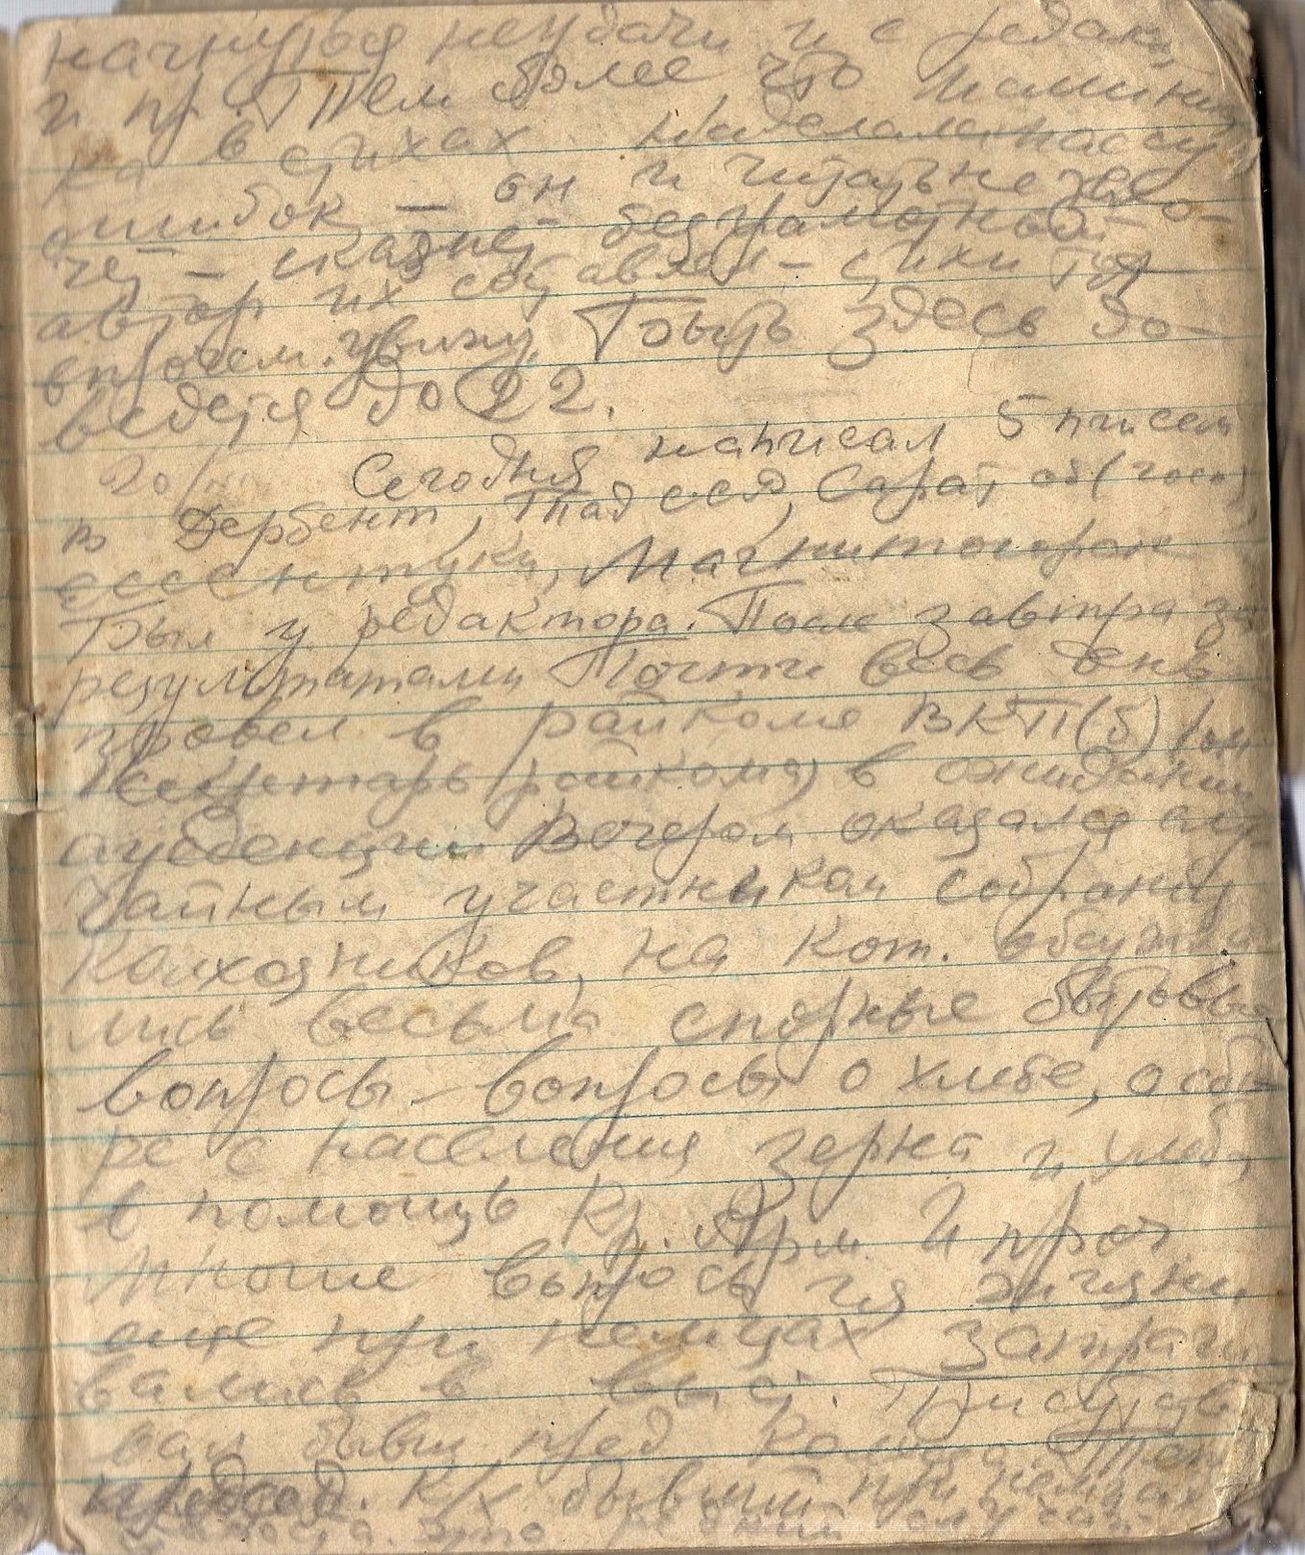 начнутся неудачи и с редак
и пр. Тем более, что машинис
ка в стихах наделала массу
ошибок — он и читать не захо-
чет — скажет безграмотный
автор их составлял — стихи
впрочем увижу. Побыть здесь до-
ведется до 22.
20/ Сегодня написал 5 писем
в Дербент, Саратов
ессентуки, Магнитогорск
Был у редактора. После завтра за
результатами Почти весь день
провел в райкоме ВКП(б)
секретарь райкома) в ожидании
аудиенции. Вечером оказался слу-
чайным участником собрания
колхозников, на кот. обсужда
лись весьма спорные бытовые
вопросы — вопросы о хлебе, о сбо-
ре с населения зерна и хлеба
в помощь Кр. Арм. И проч
Многие вопросы из жизни
еще при немцах запраши
вались в
вал бывш пред колхоза.
председ. к/х бывший при немцах
это редкий случай